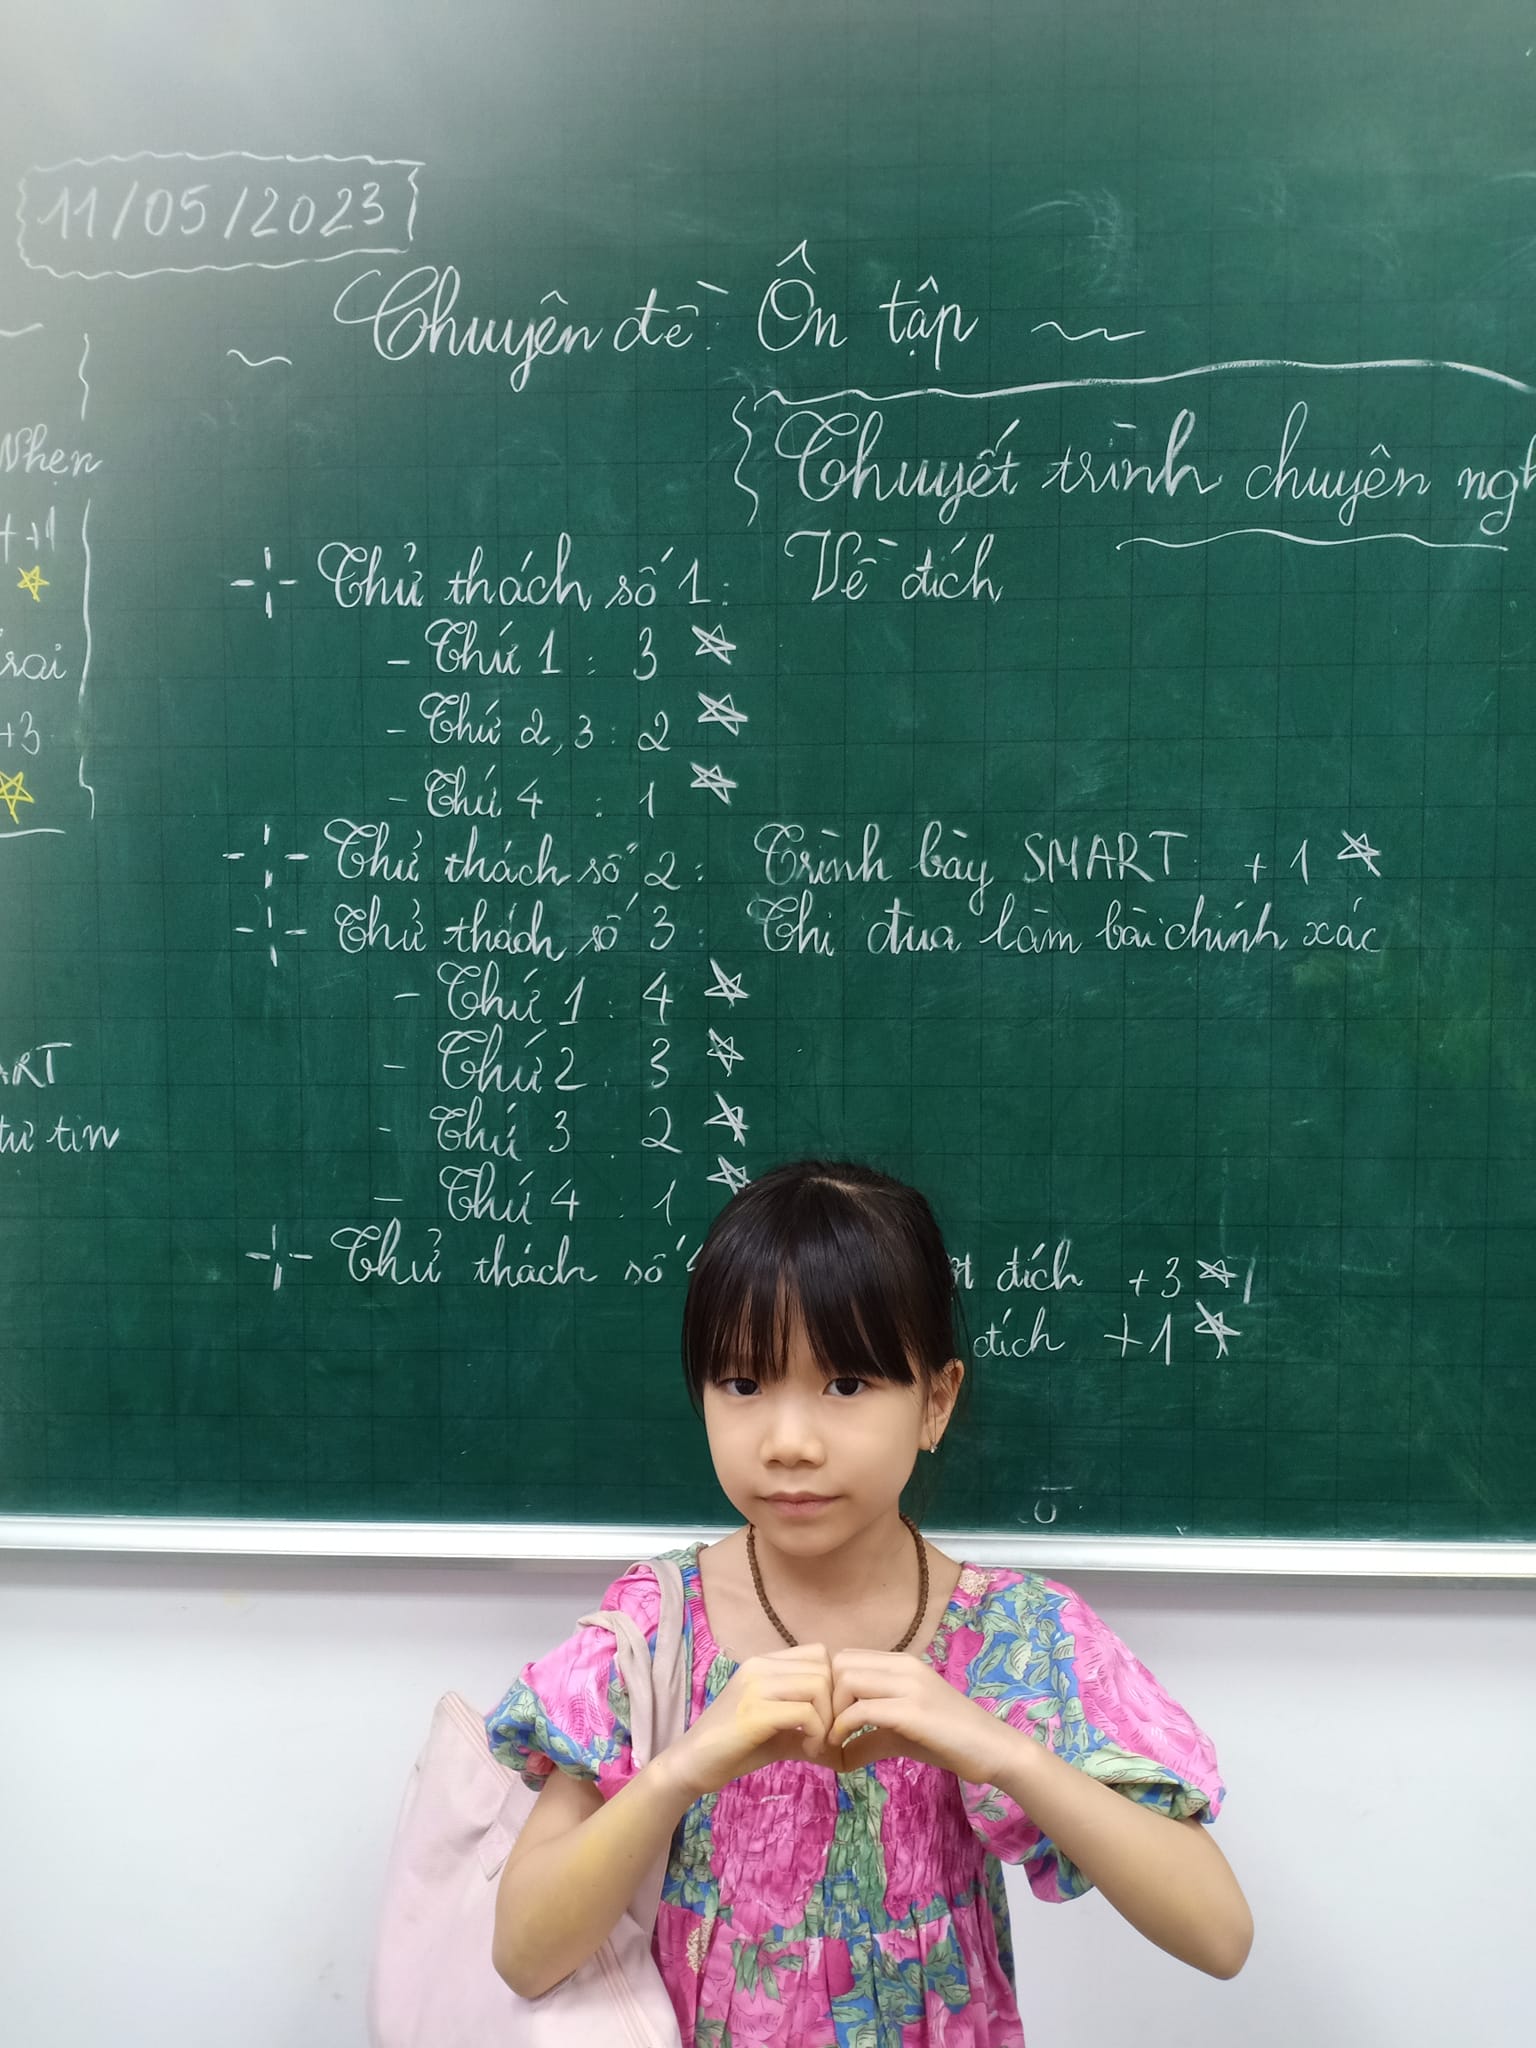 11/05/2023
Chuyên đề: Ôn tập
Thuyết trình chuyên ng
Thử thách số 1: Về đích
- Thứ 1 : 3
- Thứ 2, 3 : 2
- Thứ 4 : 1
Thử thách số 2: Trình bày SMART +1
Thử thách số 3: Thi đua làm bài chính xác
- Thứ 1 : 4
- Thứ 2 : 3
- Thứ 3 : 2
- Thứ 4 : 1
Thử thách số
đích +3
đích +1
Nhẹn
++1
+3
tự tin